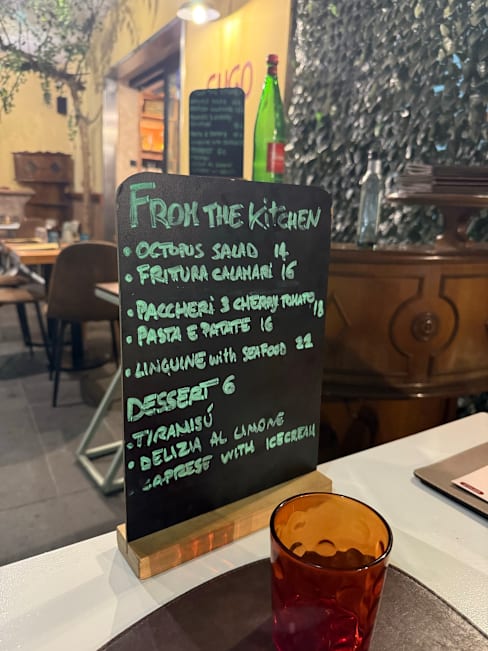 FROM THE KITCHEN
• OCTOPUS SALAD 14
• FRITURA CALAMARI 16
• PACCHERI 3 CHERRY TOMATO 18
• PASTA E PATATE 16
• LINGUINE with SEAFOOD 22
DESSERT 6
• TIRAMISÚ
• DELIZIA AL LIMONE
CAPRESE WITH ICECREAM
SUGO